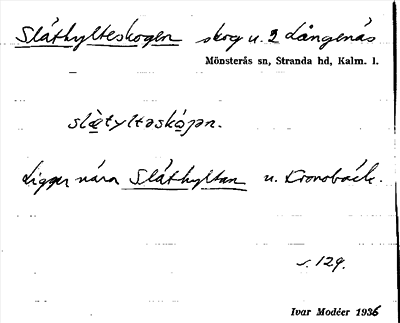 Släthylteskogen skog u. 2 Långenäs
Mönsterås sn, Stranda hd, Kalm. l.
slätyltəskógən.
Ligger nära Släthyltan u. Kronobäck.
s. 129.
Ivar Modéer 1936